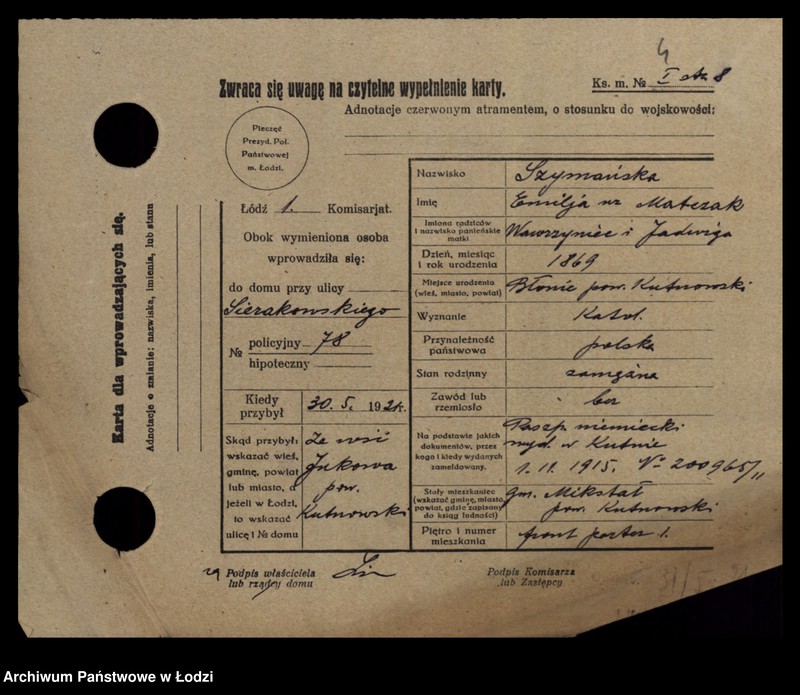 4
Zwraca się uwagę na czytelne wypełnienie karty.
Ks. m. № I str. 8
Adnotacje czerwonym atramentem, o stosunku do wojskowości:
Pieczęć
Prezyd. Pol.
Państwowej
m. Łodzi.
Karta dla wprowadzających się.
Adnotacje o zmianie: nazwiska, imienia, lub stanu
Łódź 1. Komisarjat.
Obok wymieniona osoba
wprowadziła się:
do domu przy ulicy
Sierakowskiego
№ policyjny 78
hipoteczny
Kiedy przybył 30. 5. 1921r.
Skąd przybył:
wskazać wieś,
gminę, powiat
lub miasto, a
jeżeli w Łodzi,
to wskazać
ulicę i № domu
Ze wsi
Jukowa
pow.
Kutnowski
Nazwisko Szymańska
Imię Emilja uz Matczak
Imiona rodziców
i nazwisko panieńskie
matki
Wawrzyniec i Jadwiga
Dzień, miesiąc
i rok urodzenia
1869
Miejsce urodzenia
(wieś, miasto, powiat)
Błonie pow. Kutnowski
Wyznanie Katol.
Przynależność
państwowa
polska
Stan rodzinny zamężna
Zawód lub
rzemiosło
bez
Na podstawie jakich
dokumentów, przez
kogo i kiedy wydanych
zameldowany.
Paszp niemiecki
wyd. w Kutnie
1. 11. 1915. № 200965/11
Stały mieszkaniec
(wskazać gminę, miasto,
powiat, gdzie zapisany
do ksiąg ludności)
gm. Mikstał
pow. Kutnowski
Piętro i numer
mieszkania
front parter 1.
Podpis właściciela
lub rządcy domu
Podpis Komisarza
lub Zastępcy
Archiwum Państwowe w Łodzi